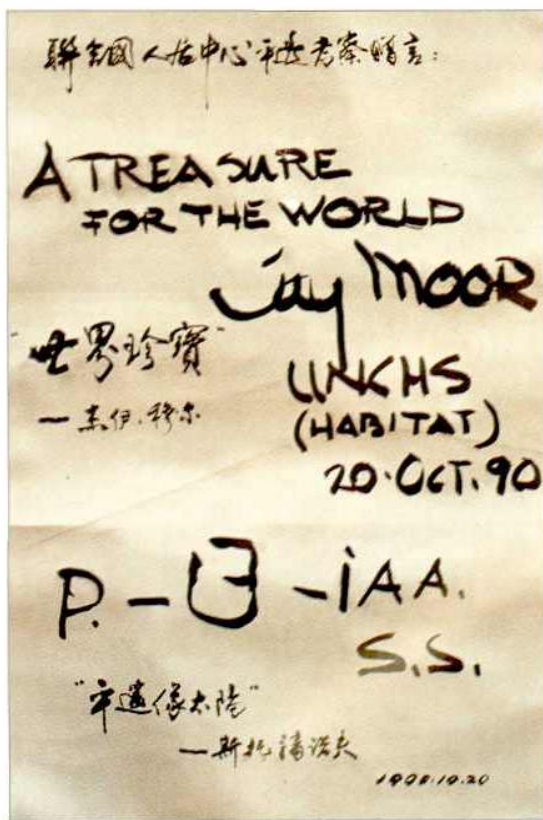 聯合國人居中心平遙考察贈言：
A TREASURE
FOR THE WORLD
Jay MOOR
"世界珍寶"
—杰伊·穆尔
UNKHS
(HABITAT)
20·OCT.90
P.—日—iAA.
S.S.
"平遙像太陽"
—斯托
1990.10.20